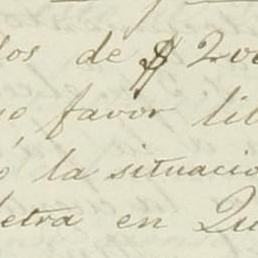 los de $200
favor lib
ó la situacio
letra en Qu